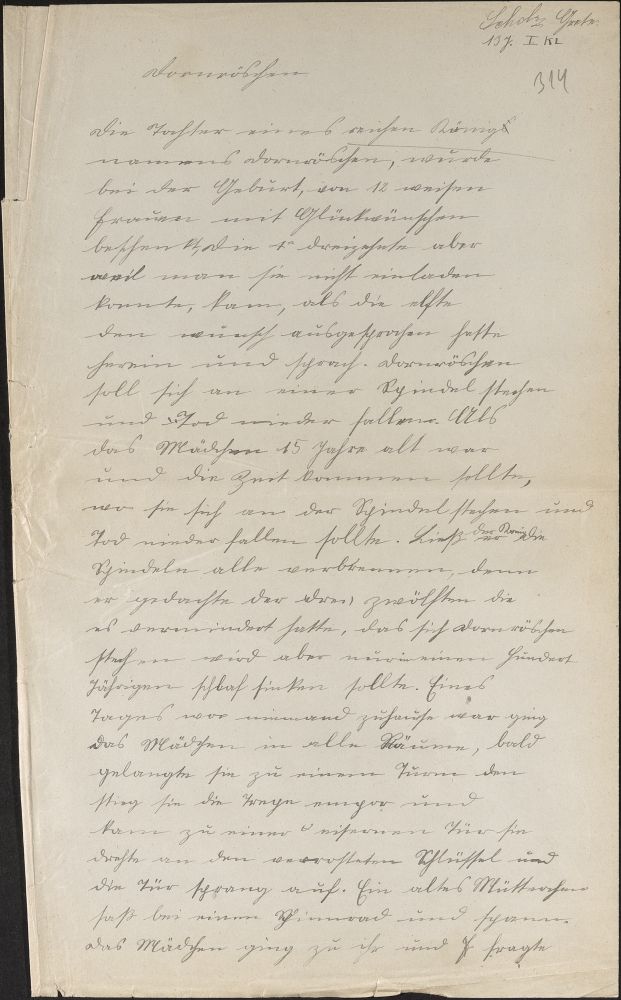 Scholz Grete.
13 J. I Kl
314
Dornröschen
Die Tochter eines reichen Königs
namens Dornröschen, wurde
bei der Geburt, von 12 weisen
Frauen mit Glückwünschen
beschenkt, Die dreizehnte aber
weil man sie nicht einladen
konnte, kam, als die elfte
den wunsch ausgesprochen hatte
herein und sprach. Dornröschen
soll sich an einer Spindel stechen
und Tod nieder fallen. Als
das Mädchen 15 Jahre alt war
und die Zeit kommen sollte,
wo sie sich an der Spindel stechen und
Tod nieder fallen sollte. Ließ der König die
Spindeln alle verbrennen, denn
er gedachte der zwölften die
es vermindert hatte, das sich Dornröschen
stechen wird aber nur in einen Hundert
Jährigen schlaf sinken sollte. Eines
Tages wo niemand zuhause war ging
das Mädchen in alle Räume, bald
gelangte sie zu einem Turm den
stieg sie die Trepe empor und
kam zu einer eisernen Tür sie
drehte an den verrosteten Schlüssel und
die Tür sprang auf. Ein altes Mütterchen
saß bei einem Spinnrad und spann.
Das Mädchen ging zu ihr und fragte